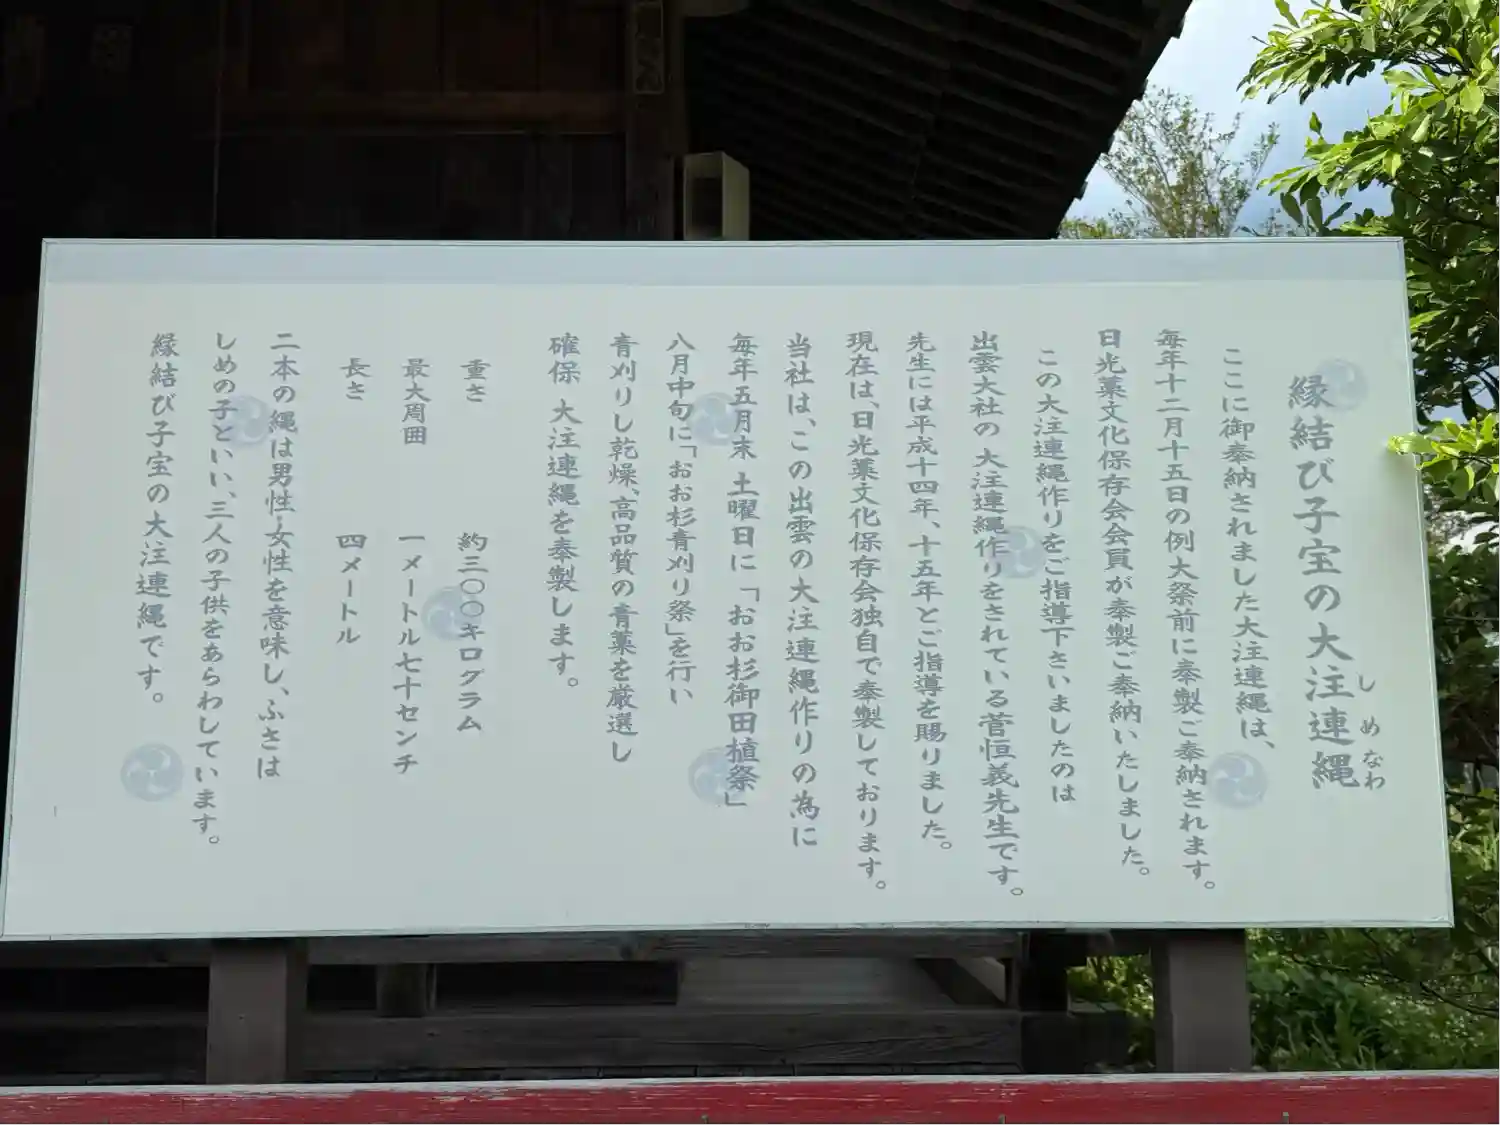 縁結び子宝の大注連縄
しめなわ
ここに御奉納されました大注連縄は、
毎年十二月十五日の例大祭前に奉製ご奉納されます。
日光藁文化保存会会員が奉製ご奉納いたしました。
この大注連縄作りをご指導下さいましたのは
出雲大社の 大注連縄作りをされている菅恒義先生です。
先生には平成十四年、十五年とご指導を賜りました。
現在は、日光藁文化保存会独自で奉製しております。
当社は、この出雲の大注連縄作りの為に
毎年五月末 土曜日に「おお杉御田植祭」
八月中旬に「おお杉青刈り祭」を行い
青刈りし乾燥、高品質の青藁を厳選し
確保 大注連縄を奉製します。
重さ 約三〇〇キログラム
最大周囲 一メートル七十センチ
長さ 四メートル
二本の縄は男性・女性を意味し、ふさは
しめの子といい、三人の子供をあらわしています。
縁結び子宝の大注連縄です。